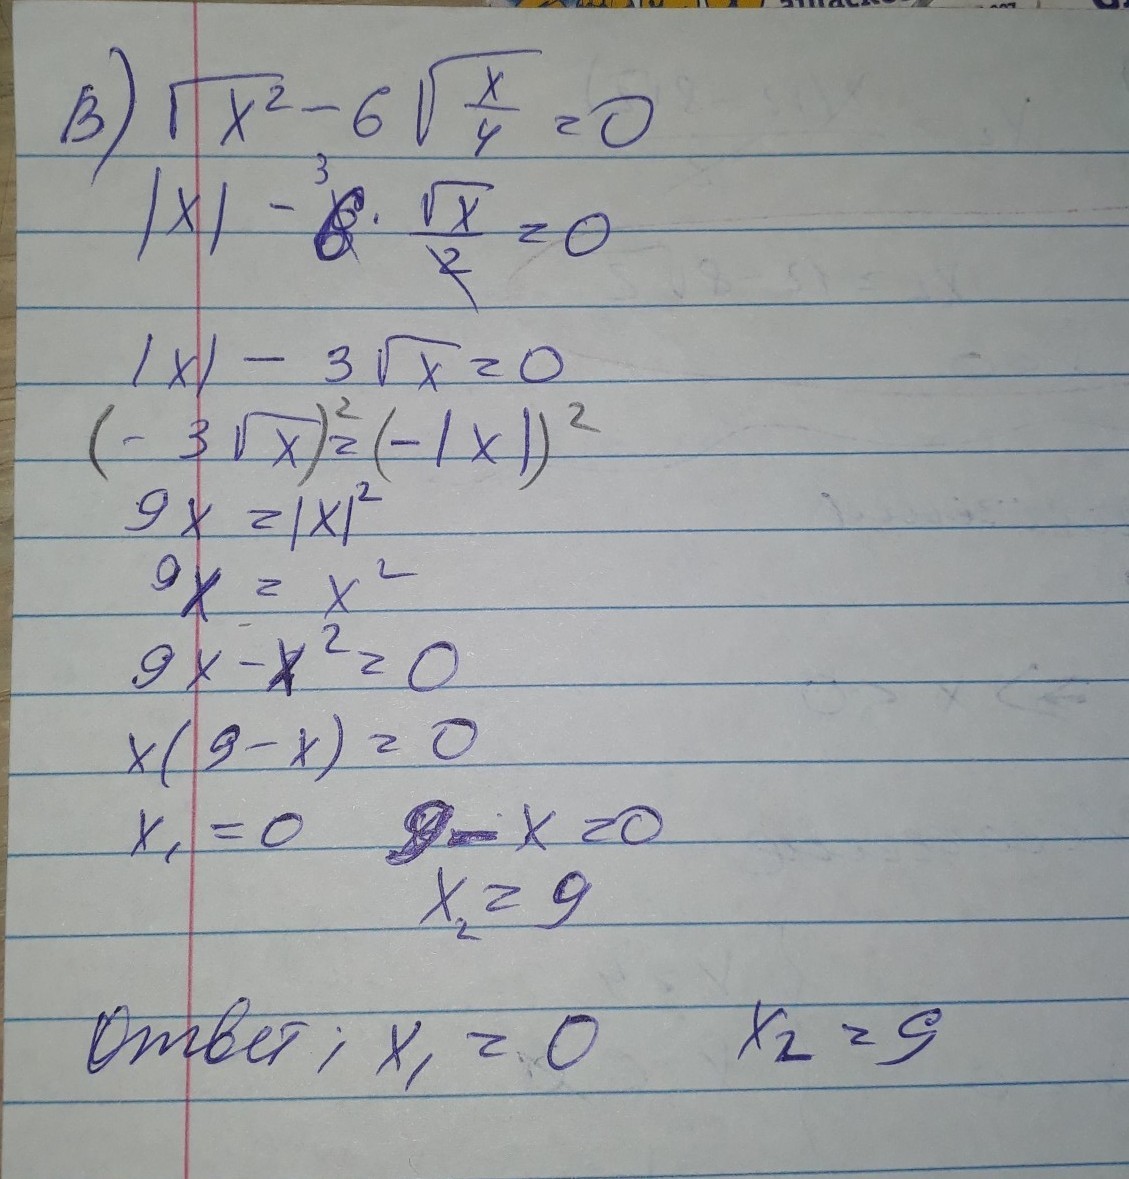 В) √x² - 6√(x/4) = 0
|x| - 6³ · √x/2 = 0
|x| - 3√x = 0
(-3√x)² = (-|x|)²
9x = |x|²
9x = x²
9x - x² = 0
x(9 - x) = 0
x₁ = 0 9 - x = 0
x₂ = 9
Ответ; x₁ = 0 x₂ = 9